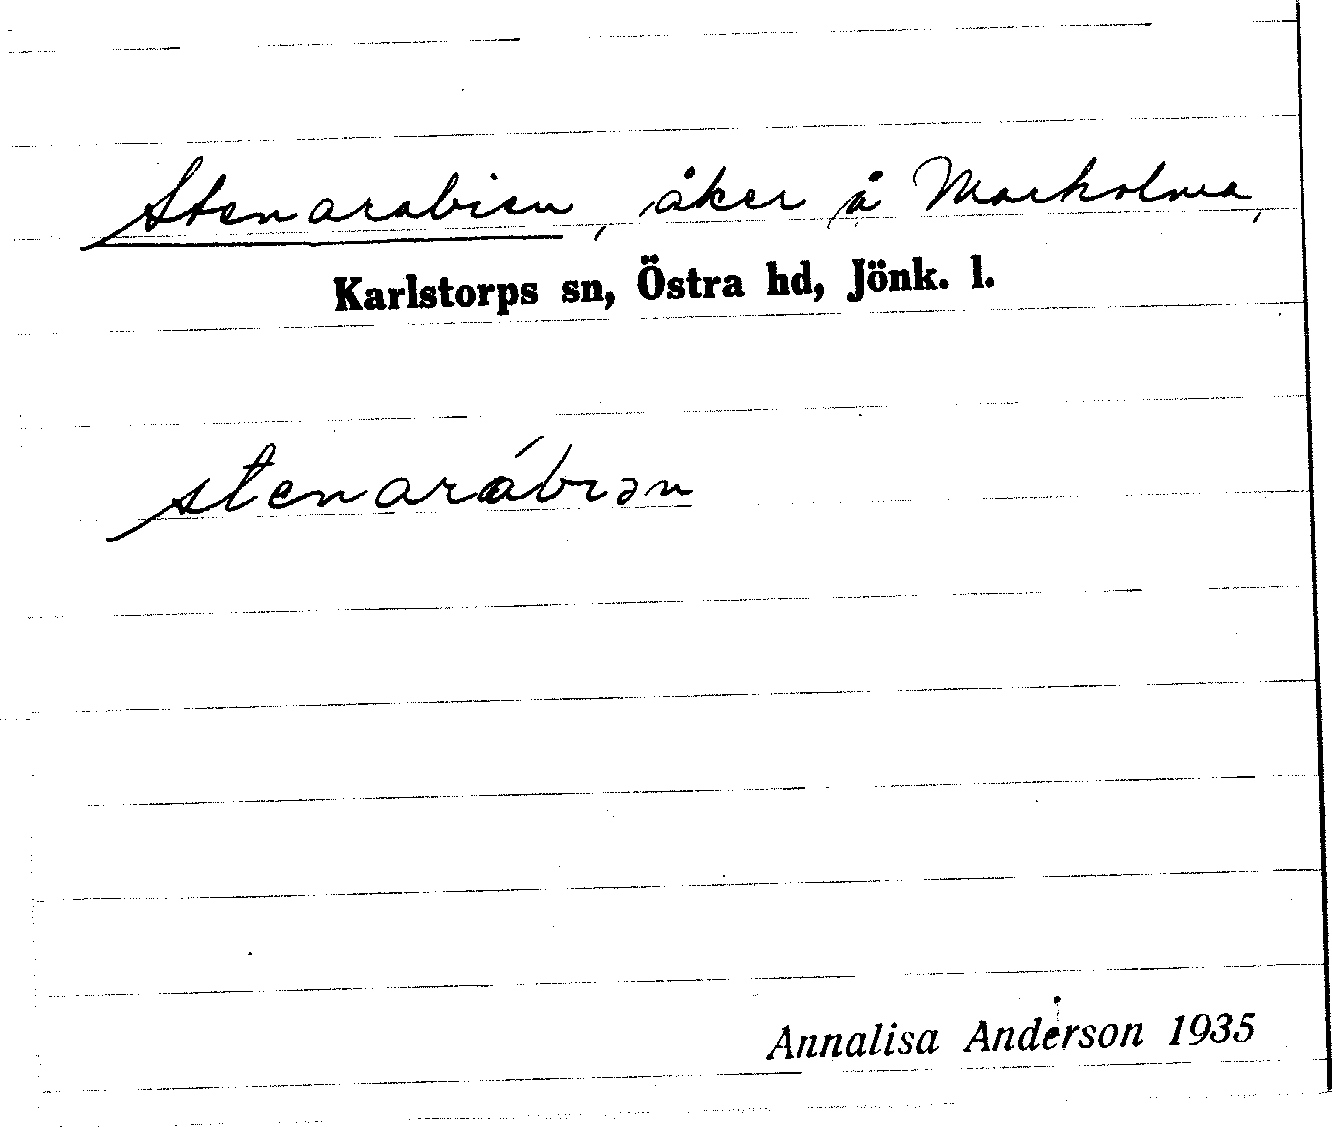 Stenarabien, åker å Markolma,
Karlstorps sn, Östra hd, Jönk. l.
stenarábıən
Annalisa Anderson 1935